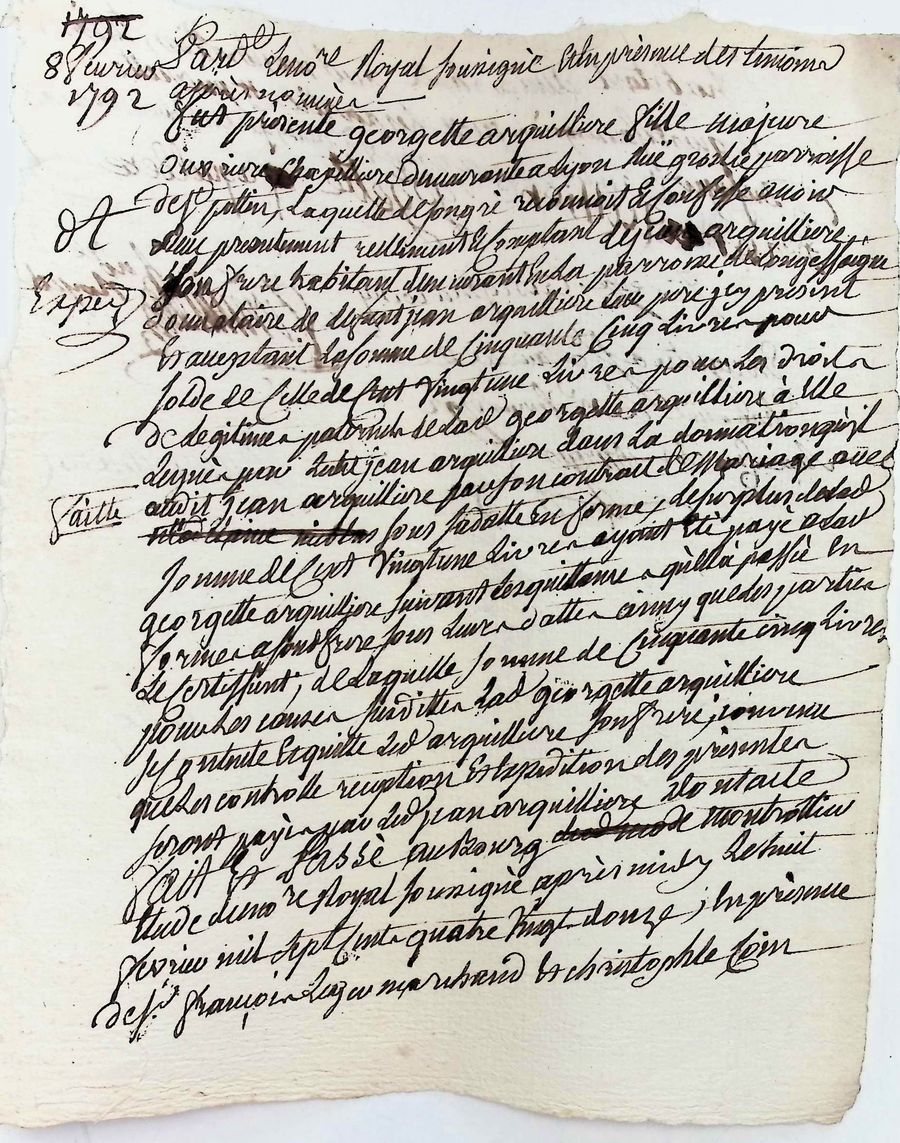 1792
8 fevrier
1792
Pard.t Le no.re Royal soussigné Et En présence des temoins
après nommés
fut présente georgette arguilliere fille majeure
ouvriere Chapelliere demeurante a Lyon Ruë grolée parroisse
de s.t potin, Laquelle de son gré reconnoit Et Confesse avoir
Reçu présentement réellement Et Comptant de jean arguilliere
Son frere habitant demeurant En La parroisse de Longessaigne
donnataire de defunt jean arguilliere Leur pere jcy présent
Et acceptant La somme de Cinquante Cinq Livres pour
solde de Celle de Cent Vingt une Livres pour Les droits
de Legitimes paternels de Lad. georgette arguilliere à Elle
Legués par Ledit jean arguilliere dans La donnation qu'il
audit jean arguilliere par son contrat de Mariage avec
faitte
sous sa datte En forme, Le surplus de Lad.
somme de Cent Vingt une Livres ayant Eté payé a Lad.
georgette arguilliere suivant Les quittances qu'Elle à passé En
formes a son d. frere sous Leurs dattes ainsy que Les parties
Le Certiffient, de Laquelle somme de Cinquante cinq Livres
pour Les causes susdittes Lad. georgette arguilliere
se Contente Et quitte Led. arguilliere son frere, convenu
que Les controlle reception Et Expedition des présentes
seront payés par Led. jean arguilliere Dont acte
fait Et Passé au Bourg de Montrottier
Etude du no.re Royal soussigné après midy Le huit
fevrier mil sept Cent quatre Vingt douze, En présence
de s.r françois marchand Et christophle Coin
dt
Exped.